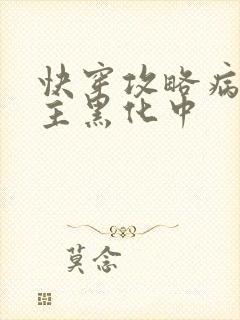 快穿攻略病
主黑化中
莫念